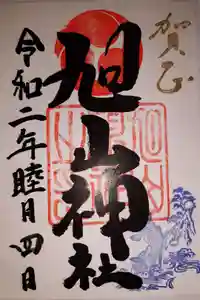 賀正
旭山神社
令和二年睦月四日